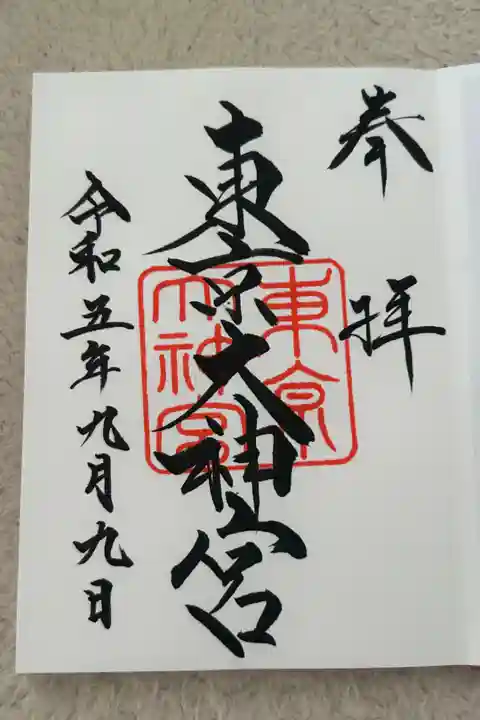 奉拝
東京大神宮
東京大神宮
令和五年九月九日